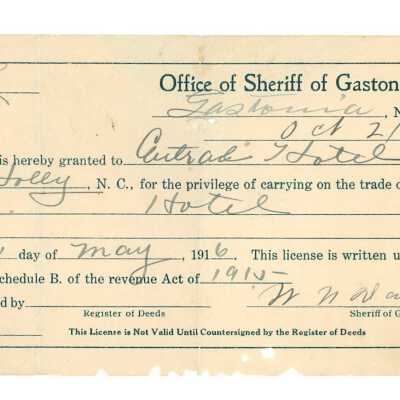 Office of Sheriff of Gaston
Gastonia, N
Oct 21
is hereby granted to Central Hotel
Holly, N. C., for the privilege of carrying on the trade o
Hotel
day of May, 1916. This license is written u
chedule B. of the revenue Act of 1915
d by W N Da
Register of Deeds Sheriff of G
This License is Not Valid Until Countersigned by the Register of Deeds